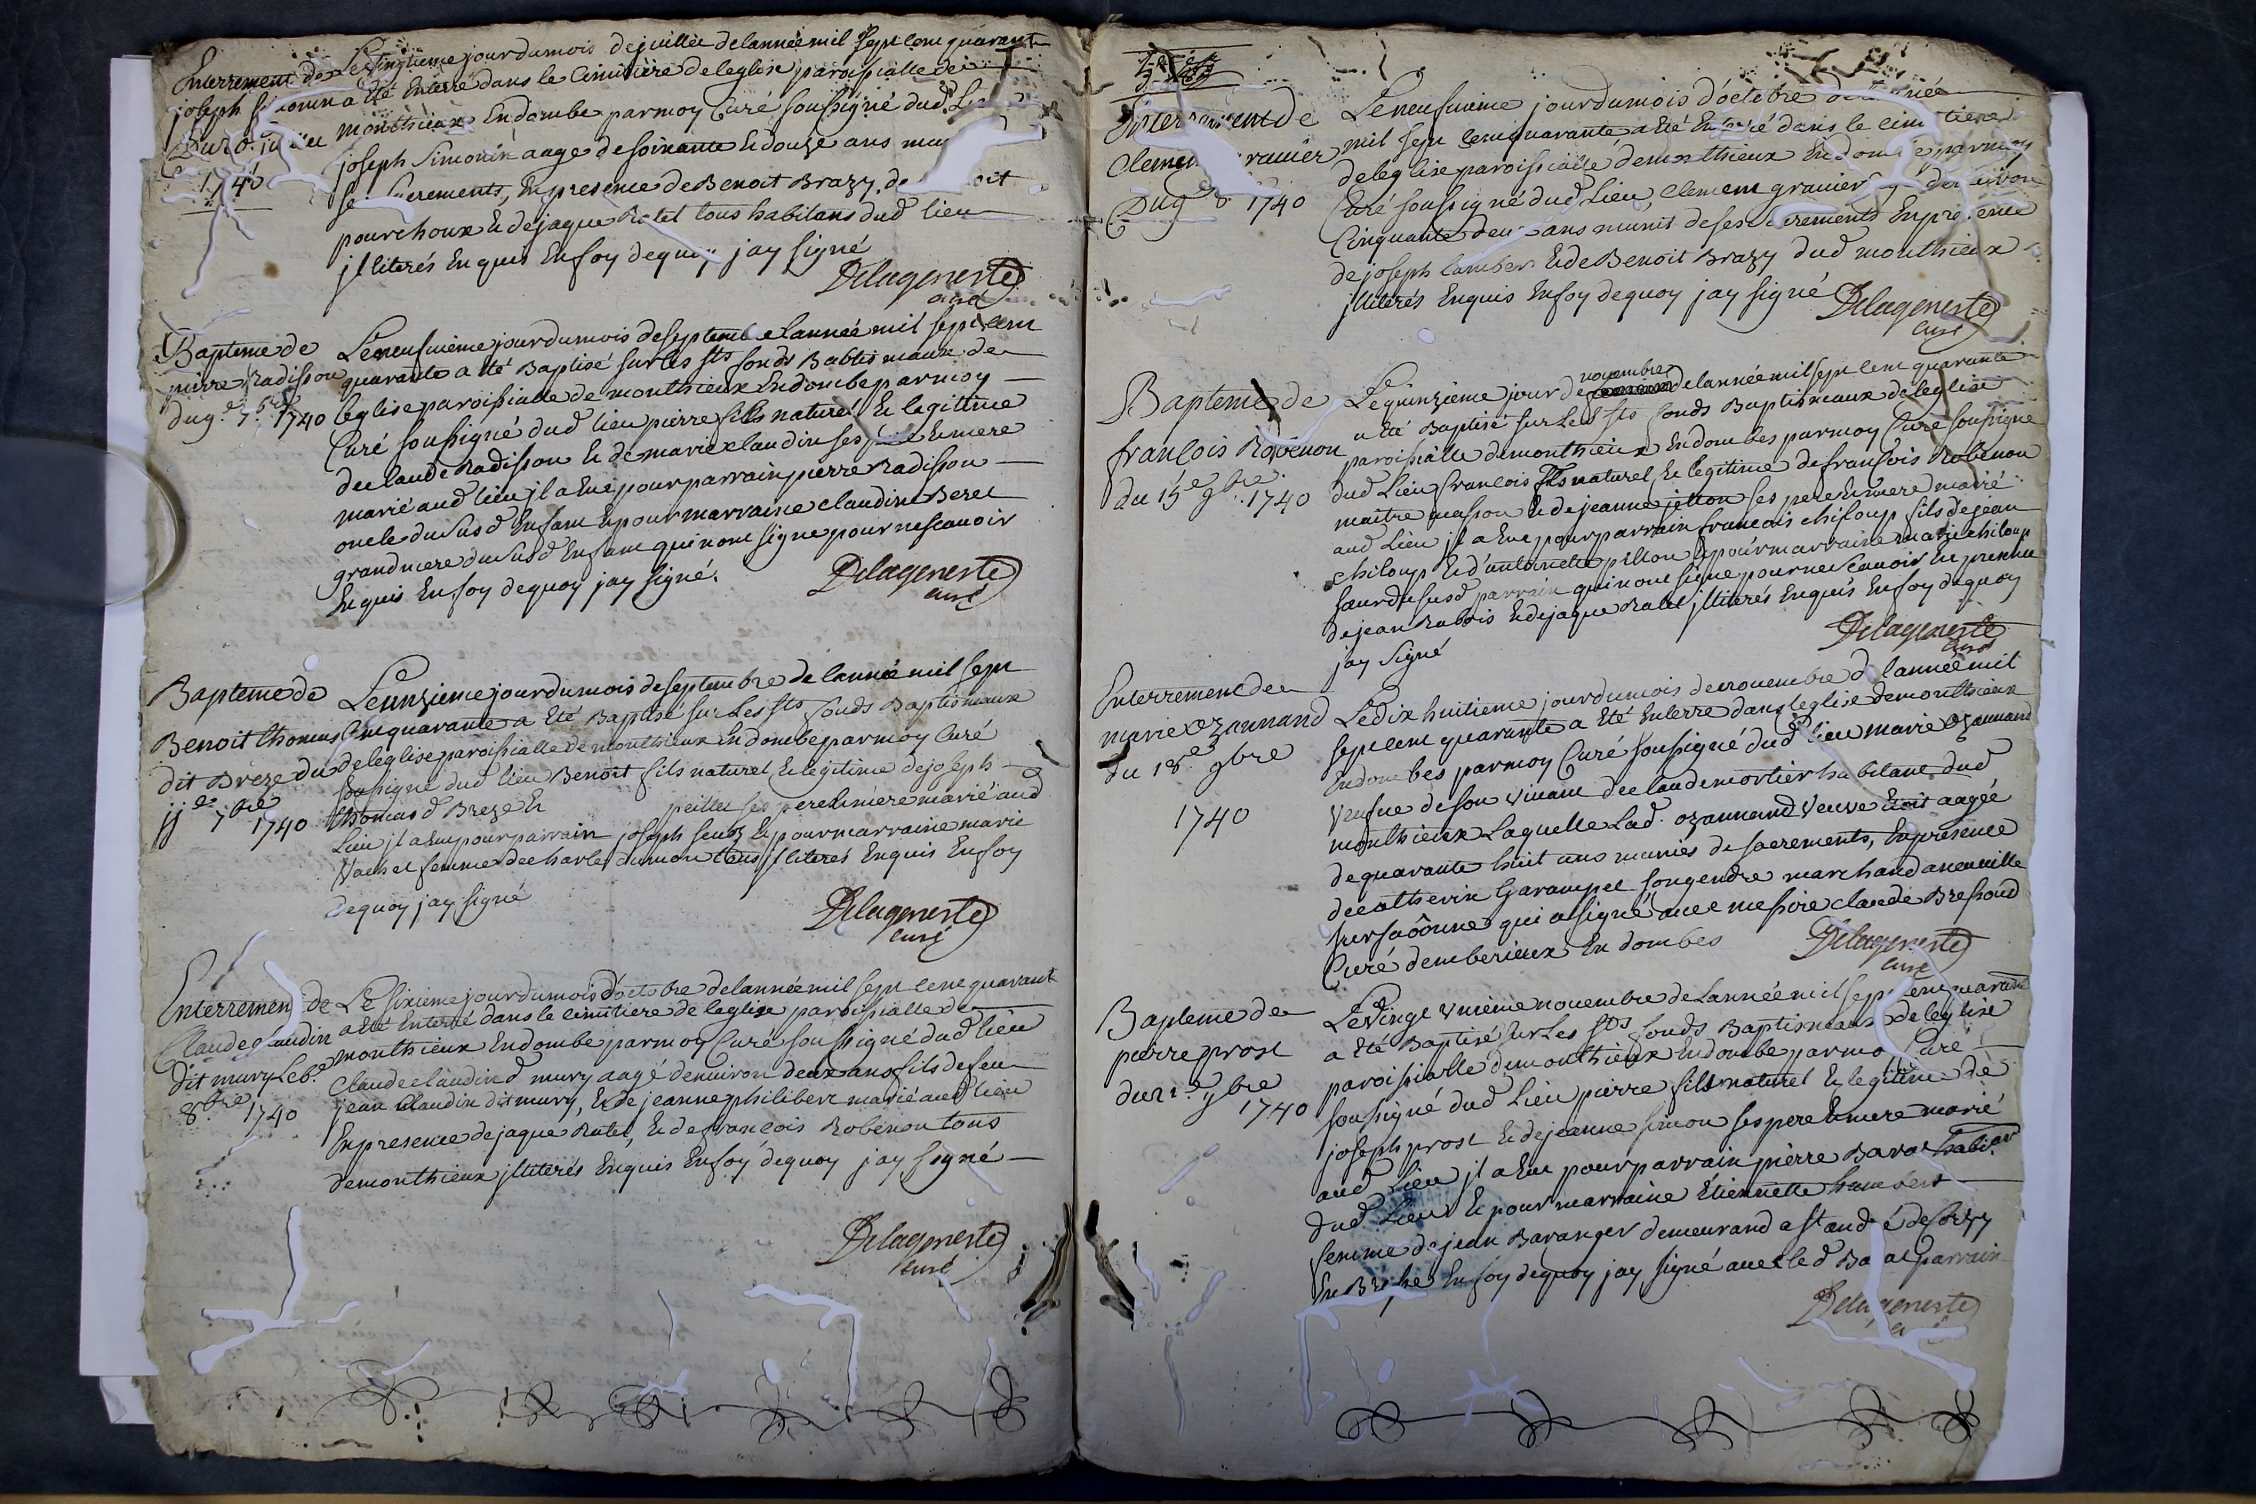 Enterrement de
joseph simonin
Du 20e juillet
1740
Le vingtieme jour du mois de juillet de lannee mil sept cent quarant
a eté Enterré dans le Cimitiere de leglise paroissialle de
monthieux En dombe par moy Curé soussigné dud. Lieu
joseph Simonin aage de soixante et douze ans
ses sacrements, En presence de Benoit Brazy, de
pourchoux et de jaque Ratel tous habitans dud lieu
jlliterés Enquis En foy de quoy jay signé
Delageneste
curé
Bapteme de
pierre Radisson
du 9e 7bre 1740
Le neufvieme jour du mois de septembre lanneé mil sept cent
quarante a eté Baptisé sur les sts fonds Babtismaux de
leglise paroissialle de monthieux En dombe par moy
Curé soussigné dud lieu pierre fils naturel et legitime
de claude Radisson et de marie claudin ses pere et mere
marié aud lieu jl a Eut pour parrain pierre Radisson
oncle du susd Enfant et pour marraine claudine Beret
grand mere du susd Enfant qui nont signe pour ne scauoir
Enquis En foy de quoy jay signé.
Delageneste
curé
Bapteme de
Benoit thomas
dit Breze du
jje 7bre 1740
Le unzieme jour du mois de septembre de lanneé mil sept
Cent quarante a Eté Baptisé sur Les sts fonds Baptismaux
de leglise paroissialle de monthieux En dombe par moy Curé
soussigné dud lieu Benoit fils naturel et legitime de joseph
thomas d Breze et peillet ses pere et mere marié aud
Lieu jl a Eut pour parrain joseph et pour marraine marie
Vachet femme de charle dumon tous jlliterés Enquis En foy
de quoy jay signé
Delageneste
curé
Enterrement de
Claude claudin
dit mury Le 6e
8bre 1740
Le sixieme jour du mois d'octobre de lanneé mil sept cent quarant
a eté Enterré dans le cimitiere de leglise paroissialle de
monthieux En dombe par moy Curé soussigné dud lieu
Claude claudin d mury aagé denuiron deux ans fils de feu
jean claudin dit mury, et de jeanne philibert marié aud lieu
En presence de jaque Ratel, et de francois Robenon tous
de monthieux jlliterés Enquis En foy de quoy jay signé
Delageneste
curé
Enterrement de
Clement grauier
Du 9e 8 1740
Le neufuieme jour du mois d'octobre de lanneé
mil sept cent quarante a Eté Enterré dans le cimitiere
de leglise paroissialle de monthieux En dombe par moy
Curé soussigné dud Lieu, clement grauier agé denuiron
Cinquante deux ans munit de ses sacrements En presence
de joseph lambert et de Benoit Brazy dud monthieux
jlliterés Enquis En foy de quoy jay signé
Delageneste
curé
Bapteme de
francois Robenon
du 15e 9bre 1740
novembre
Le quinzieme jour de de lanneé mil sept cent quarante
a eté Baptisé sur Les sts fonds Baptismaux de leglise
paroissialle de monthieux En dombes par moy Curé soussigné
dud Lieu francois fils naturel et legitime de francois Robenon
maitre masson et de jeanne jetton ses pere et mere marié
aud Lieu jl a Eut pour parrain francois chiloup fils de jean
chiloup et d'antoinette pitton et pour marraine marie chiloup
sœur du susd parrain qui nont signe pour ne scauoir En presence
de jean Rabois et de jaque Ratel jlliterés Enquis En foy de quoy
jay signé
Delageneste
curé
Enterrement de
marie ozannand
du 18e 9bre
1740
Le dix huitieme jour du mois de nouembre de lanneé mil
sept cent quarante a Eté Enterre dans leglise de monthieux
En dombes par moy Curé soussigné dud lieu marie ozannand
veufue de son viuant de claude mortier habitant dud
monthieux Laquelle Lad. ozannand veuve Etoit aagéé
de quarante huit ans munies de sacrements, En presence
de catherin Garampel son gendre marchand a neuuille
sur saôonne qui a signé auec messire claude Bressoud
Curé d'emberieux En dombes
Delageneste
curé
Bapteme de
pierre prost
du 21e 9bre
1740
Le vingt vnieme nouembre de Lanneé mil sept cent quarant
a eté Baptisé sur Les sts fonds Baptismaux de leglise
paroissialle de monthieux En dombe par moy Curé
soussigné dud Lieu pierre fils naturel et legitime de
joseph prost et de jeanne simon ses pere et mere marié
aud Lieu jl a Eut pour parrain pierre Barat
dud Lieu et pour marraine Etiennette humbert
femme de jean Baranger demeurand a st andré de Corzy
En Bresse En foy de quoy jay signé auec led Barat parrain
Delageneste